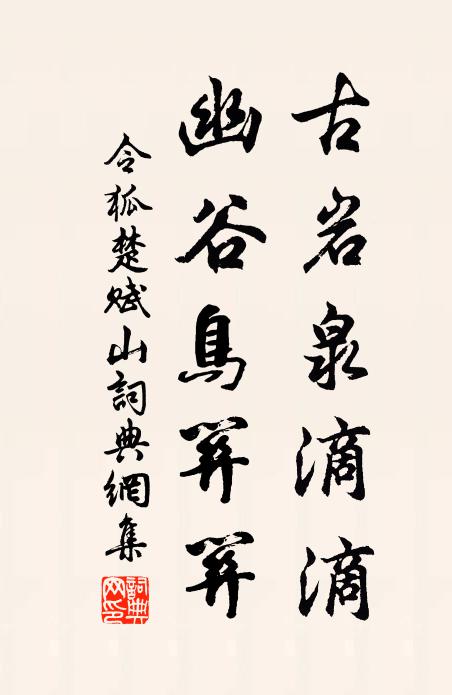 古岩泉滴滴
幽谷鳥關關
令狐楚賦山詞典網集
詞典网印